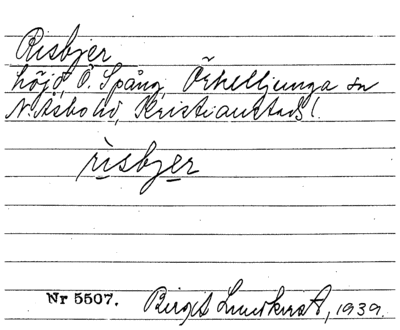 Risbjer
höjd, Ö. Spång, Örkelljunga sn
N. Åsbo hd, Kristianstads l.
risbjer
Nr 5507. Birgit Lundkvist, 1939.